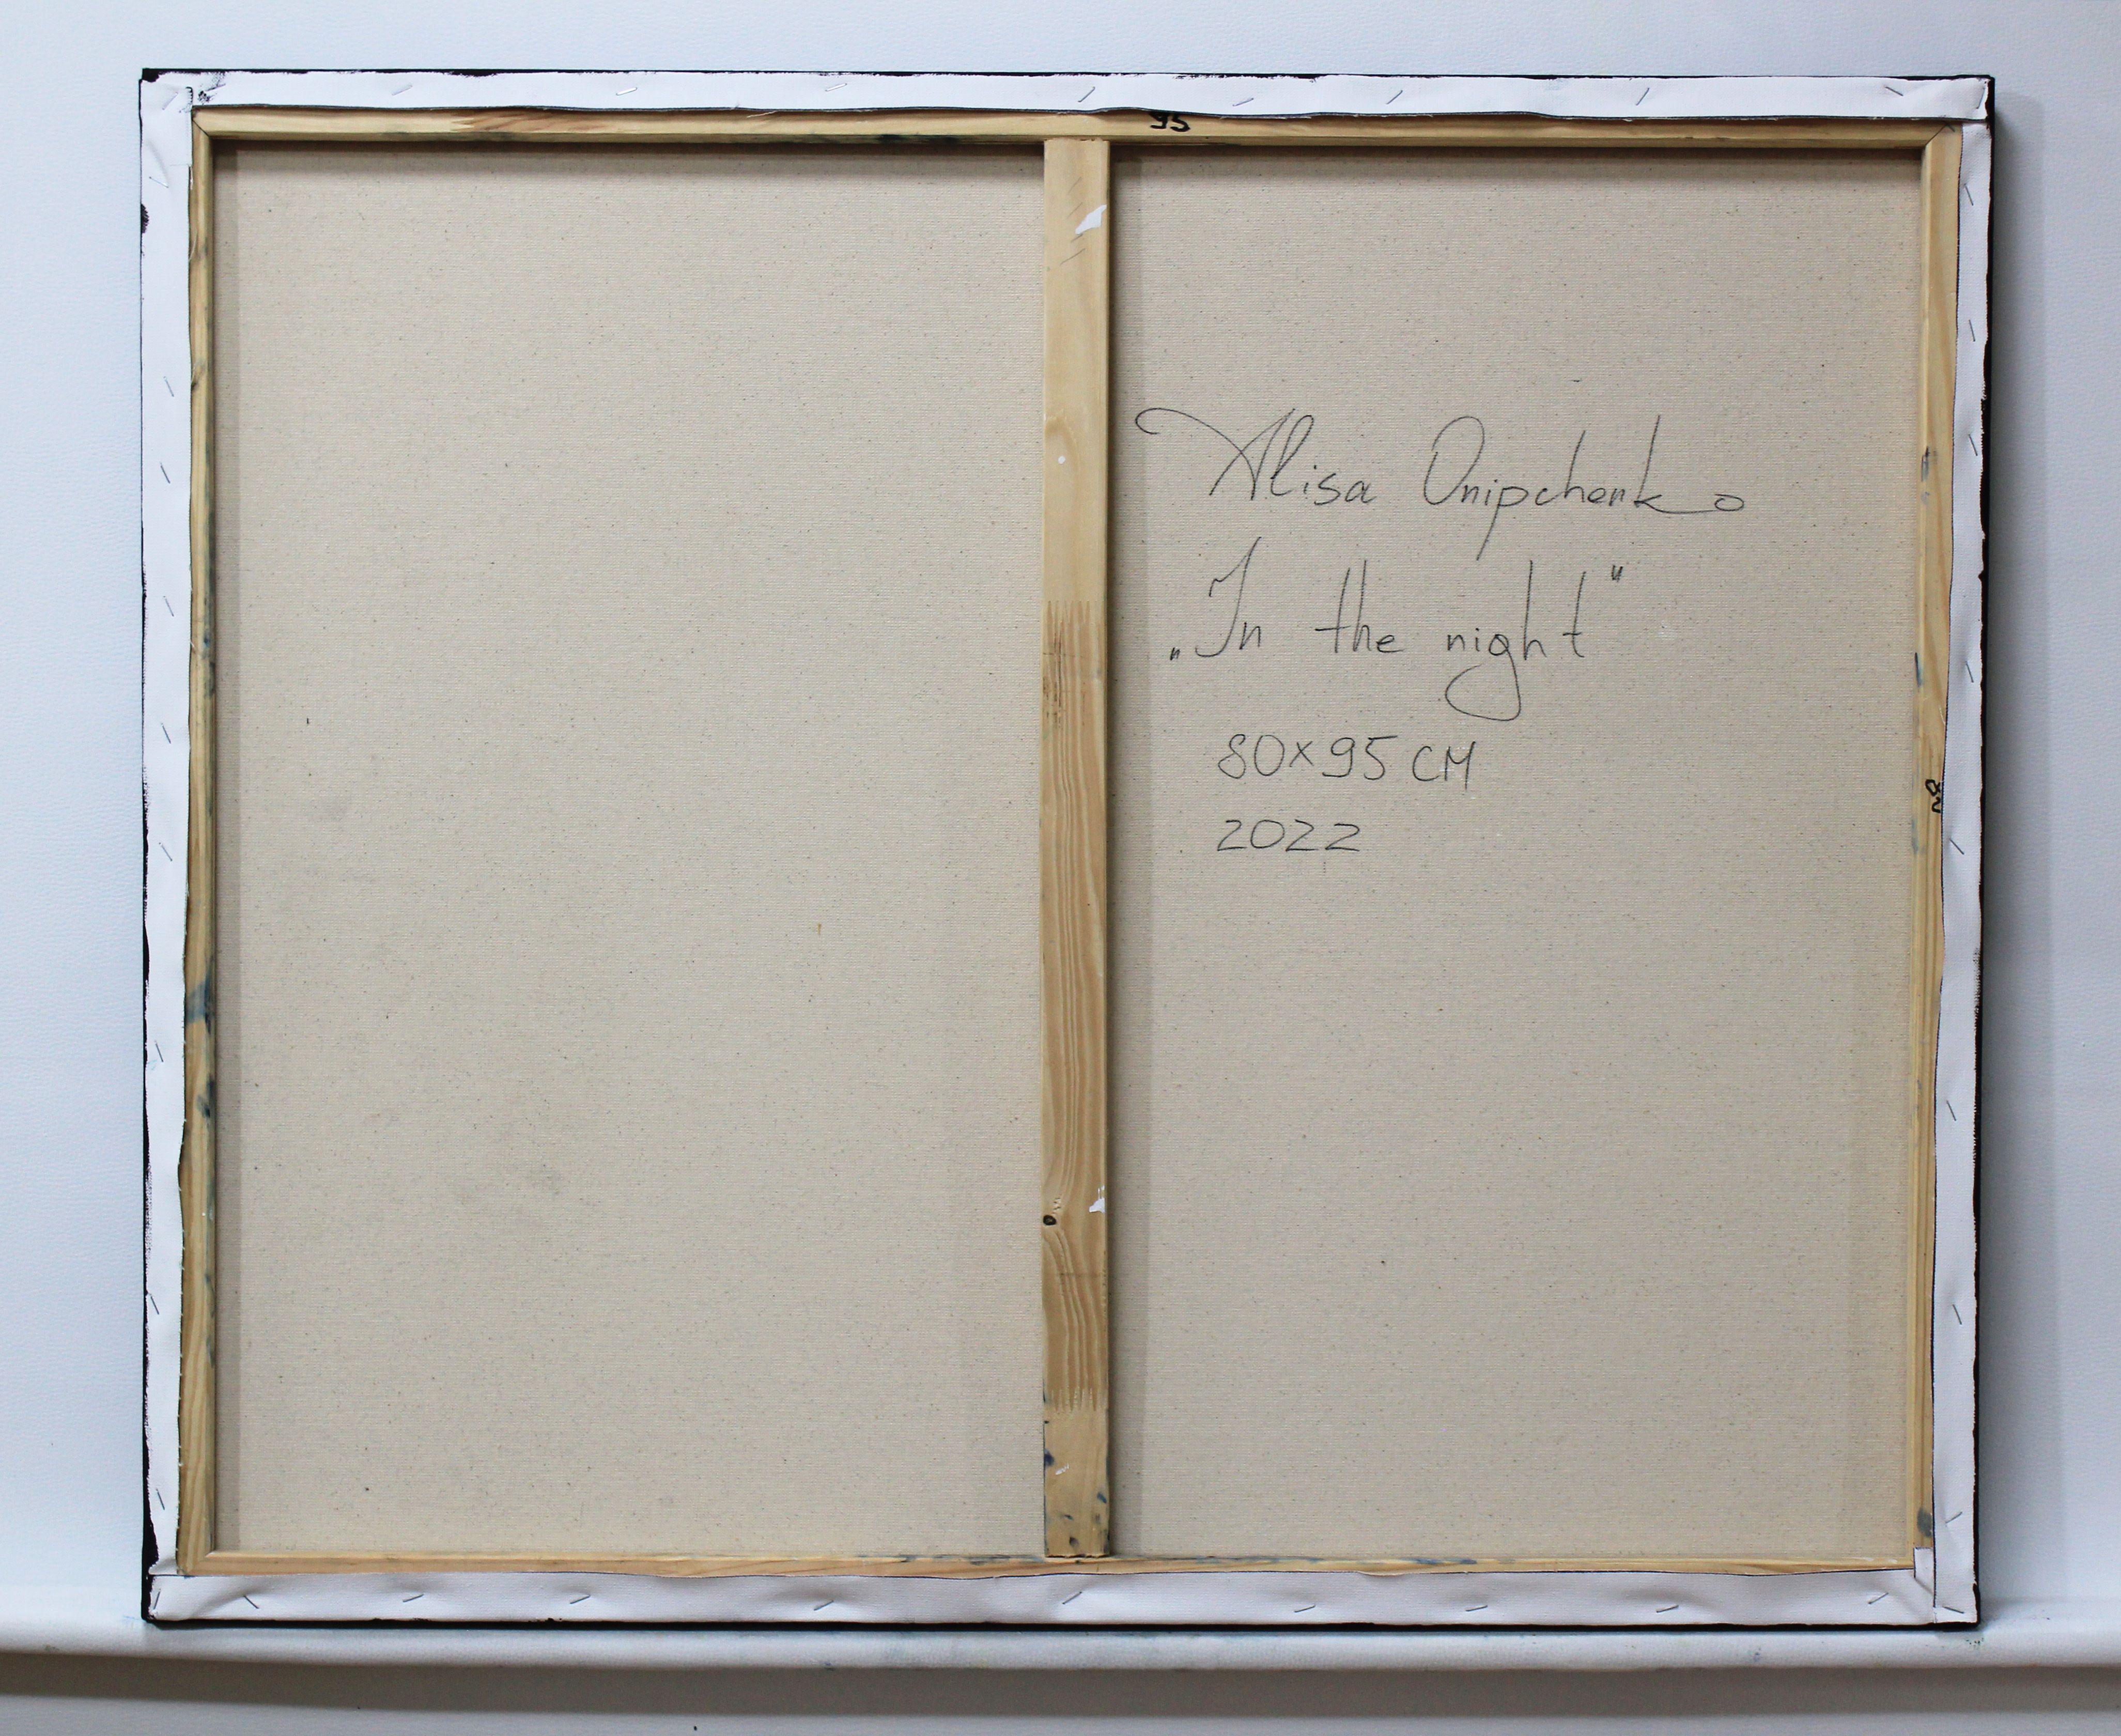 95
Alisa Onipchenko
„In the night"
80x95 CM
2022